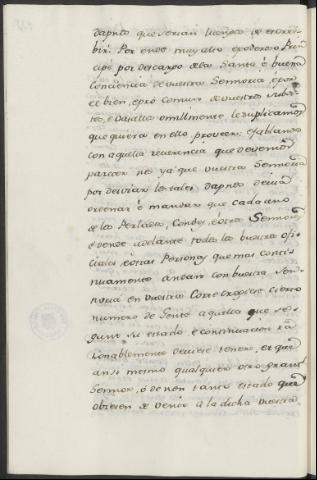 dapnto que serian luengos de escrivi-
bir. Por ende muy alto epoderoso Prin
cipe por descargo dela Santa é buena
conciencia de vuestra Sennoria, épor
el bien, epró comun de vuestros subdi-
tos, é vasallos omillmente le suplicamos
que quiera en ello proveer; e fablando
con aquella reverencia que devemos
parece nos ya que vuestra Sennoria
por desviar los tales dapnos devia
ordenar é mandar que cada uno
de los Perlados, Condes, é otros Sennores
é dende adelante todos los vuestros ofi-
ciales é otras Personas que mas conti-
nuamente andan con vuestra Sen-
noria en vuestra Corte troxiese cierto
numero de Gente aquella que se-
gunt su estado é continuacion ra-
zonablemente deviese tener, et que
ansi mesmo qualquier otro grant
Sennor, ó de non tanto estado que
obieren de venir á la dicha vuestra